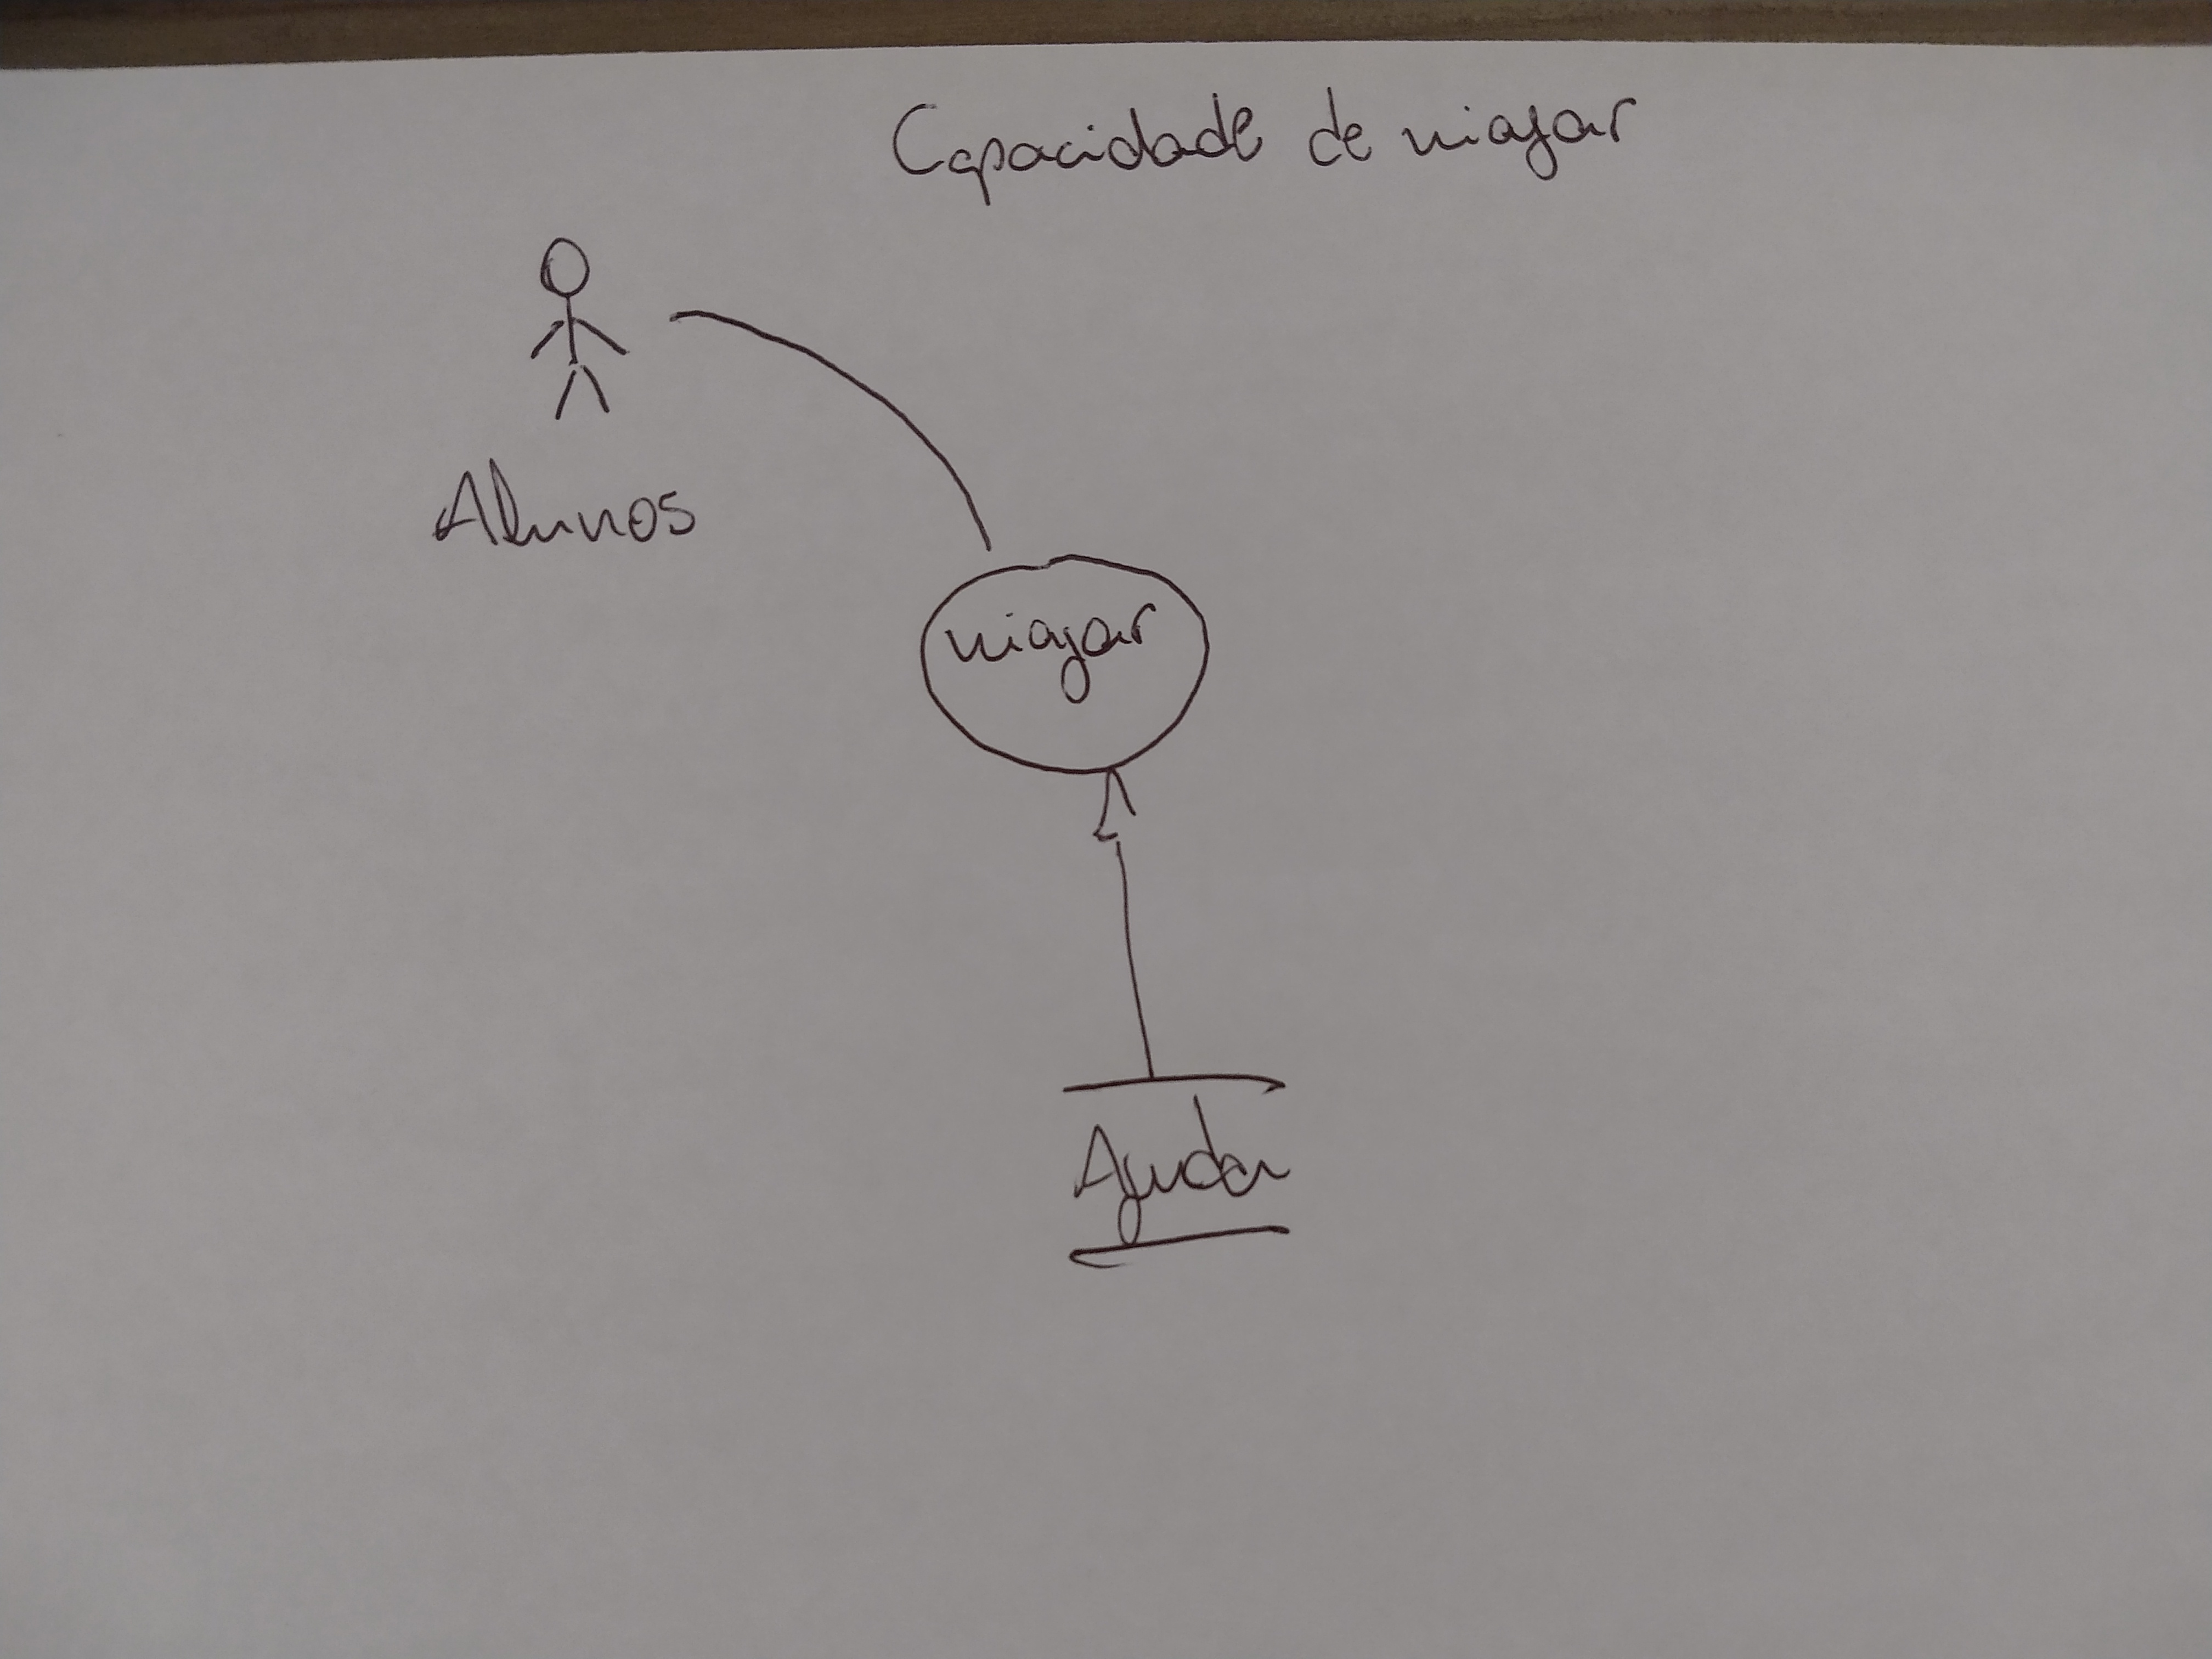 Capacidade de viajar
Alunos
viajar
Ajuda